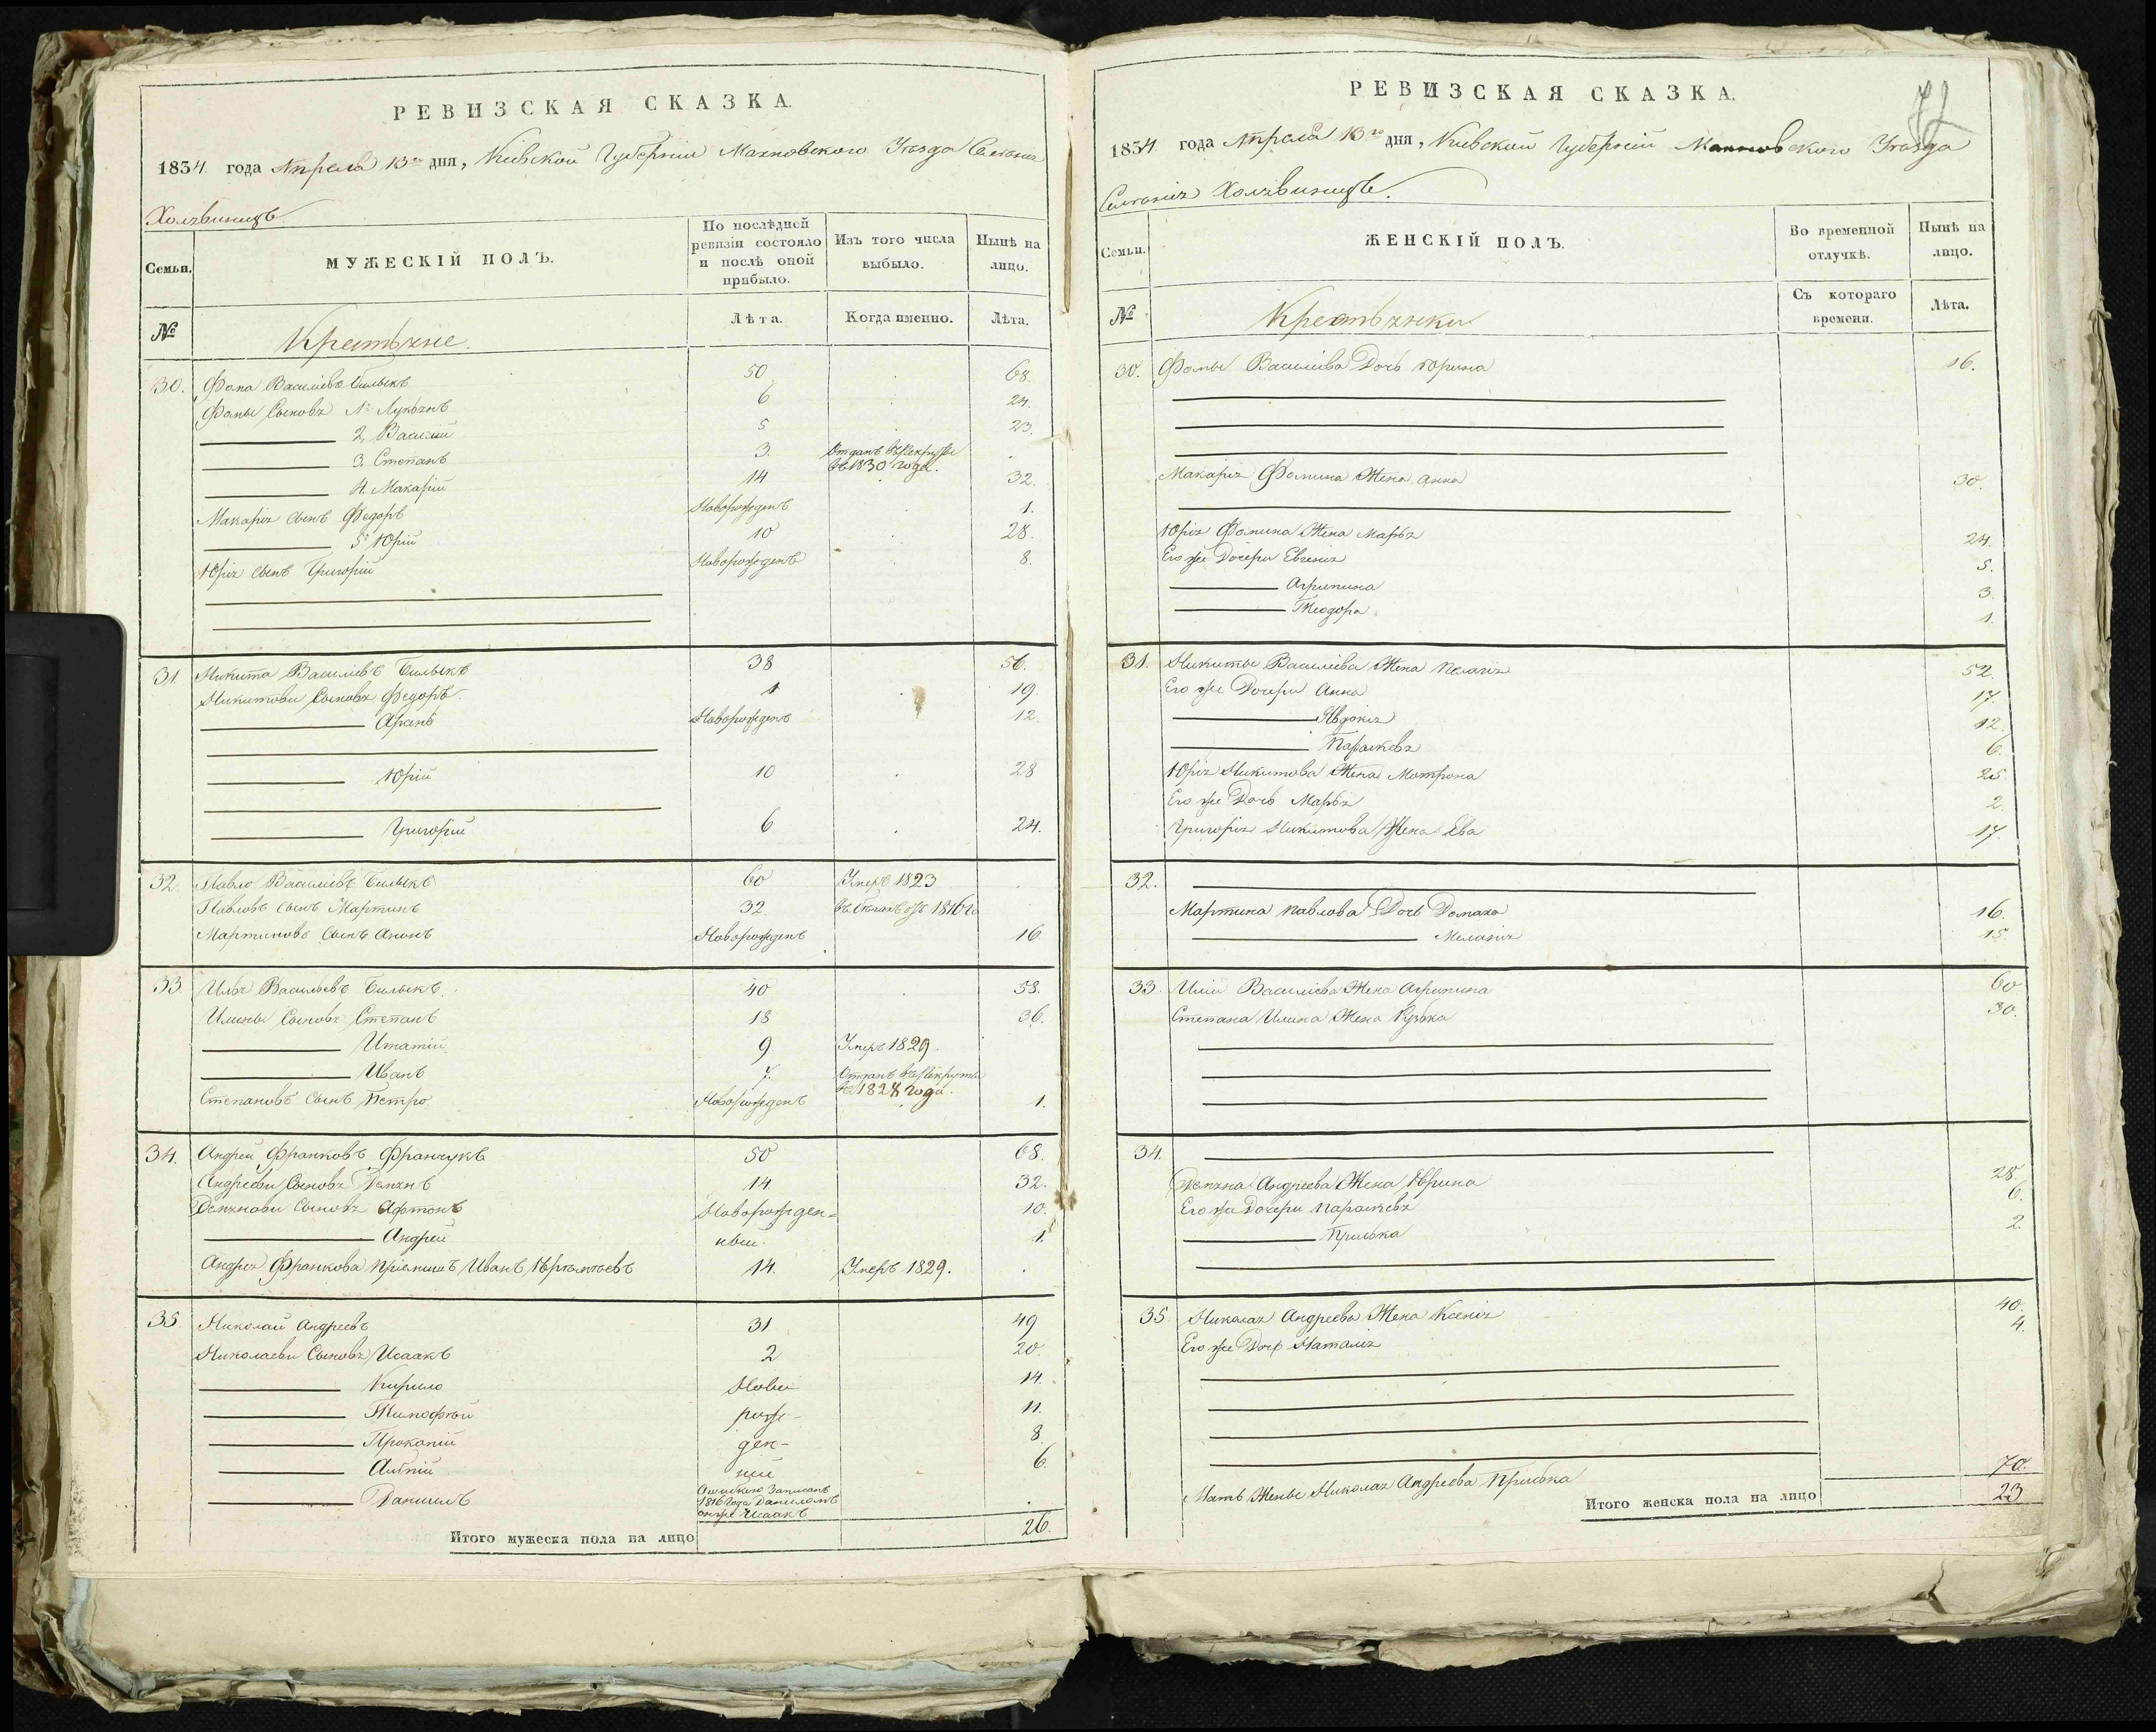 РЕВИЗСКАЯ СКАЗКА.
1834. года Апреля 13го дня, Кіевской Губерніи Махновского Уезда Селенія
Семьи.
МУЖЕСКІЙ ПОЛЪ.
По послѣдней ревизіи состояло и послѣ оной прибыло.
Изъ того числа выбыло.
Нынѣ на лицо.
№
Крестьяне.
Лѣта.
Когда именно.
Лѣта.
30. Фома Василіевъ Билыкъ 50 68.
Фомы Сыновя 1. Лукьянъ 6 24.
2. Василій 5 23.
3. Степанъ 3. Отданъ въ Рекруты въ 1830 года.
4. Макарій 14 32.
Макарія сынъ Федоръ Новорожденъ 1.
5. Юрій 10 28.
Юрія сынъ Григорій Новорожденъ 8.
31. Микита Василіевъ Билыкъ 38 56.
Никитови Сыновя Федоръ 1 19.
Новорожденъ 12.
Юрій 10 28
Григорій 6 24.
32. Павло Василіевъ Билыкъ 60 Умеръ 1823
Павловъ сынъ Мартинъ 32.
Мартиновъ Сынъ Новорожденъ 16.
33 Илья Васильевъ Билыкъ. 40 58.
Илины Сыновя Степанъ 18 36.
9. Умеръ 1829.
Иванъ 7. Отданъ въ Рекруты въ 1828 года.
Степановъ Сынъ Петро Новорожденъ 1.
34. Андрей Франковъ Франчукъ 50 68.
Андрееви Сыновя Демянъ 14 32.
Демянови Сыновя Новорожден- 10.
Андрей ныи. 1.
Андрея Франкова Иванъ 14. Умеръ 1829.
35. Николай Андреевъ 31 49
Николаеви Сыновя Исаакъ 2 20.
Кирило Ново 14.
рож- 11.
Прокопій ден- 8
ній 6.
Данилъ Ошибкою Записанъ
1816 года Даниломъ
онже Исаакъ
Итого мужеска пола на лицо 26.
РЕВИЗСКАЯ СКАЗКА.
1834 года Апреля 13го дня, Кіевской Губерніи Махновского Уезда
Семьи.
ЖЕНСКІЙ ПОЛЪ.
Во временной отлучкѣ.
Нынѣ на лицо.
№
Крестьянки
Съ котораго времени.
Лѣта.
30. Фомы Василіева Дочь 16.
Макарія Фомина Жена Анна 30.
Юрія Фомина Жена Марья 24.
Его же Дочери Евгенія 5.
Агрипина 3.
Теодора 1.
31. Никиты Василіева Жена Пелагія 52.
Его же Дочери Анна 17.
Явдокія 12.
Параскевя 6.
Юрія Никитова Жена Мотрона 25.
Его же Дочь Марья 2.
Григорія Никитова Жена Ева 17.
32.
Мартина Павлова Дочь Домаха 16.
Меланія 15.
33. Иліи Василіева Жена Агрипина 60
Степана Илина Жена 30.
34.
Демяна Андреева Жена 28.
Его же Дочери Параскевя 6.
2.
35 Николая Андреева Жена Ксенія 40.
Его же Дочь Наталія 4.
Мать Жены Николая Андреева 70.
Итого женска пола на лицо 23